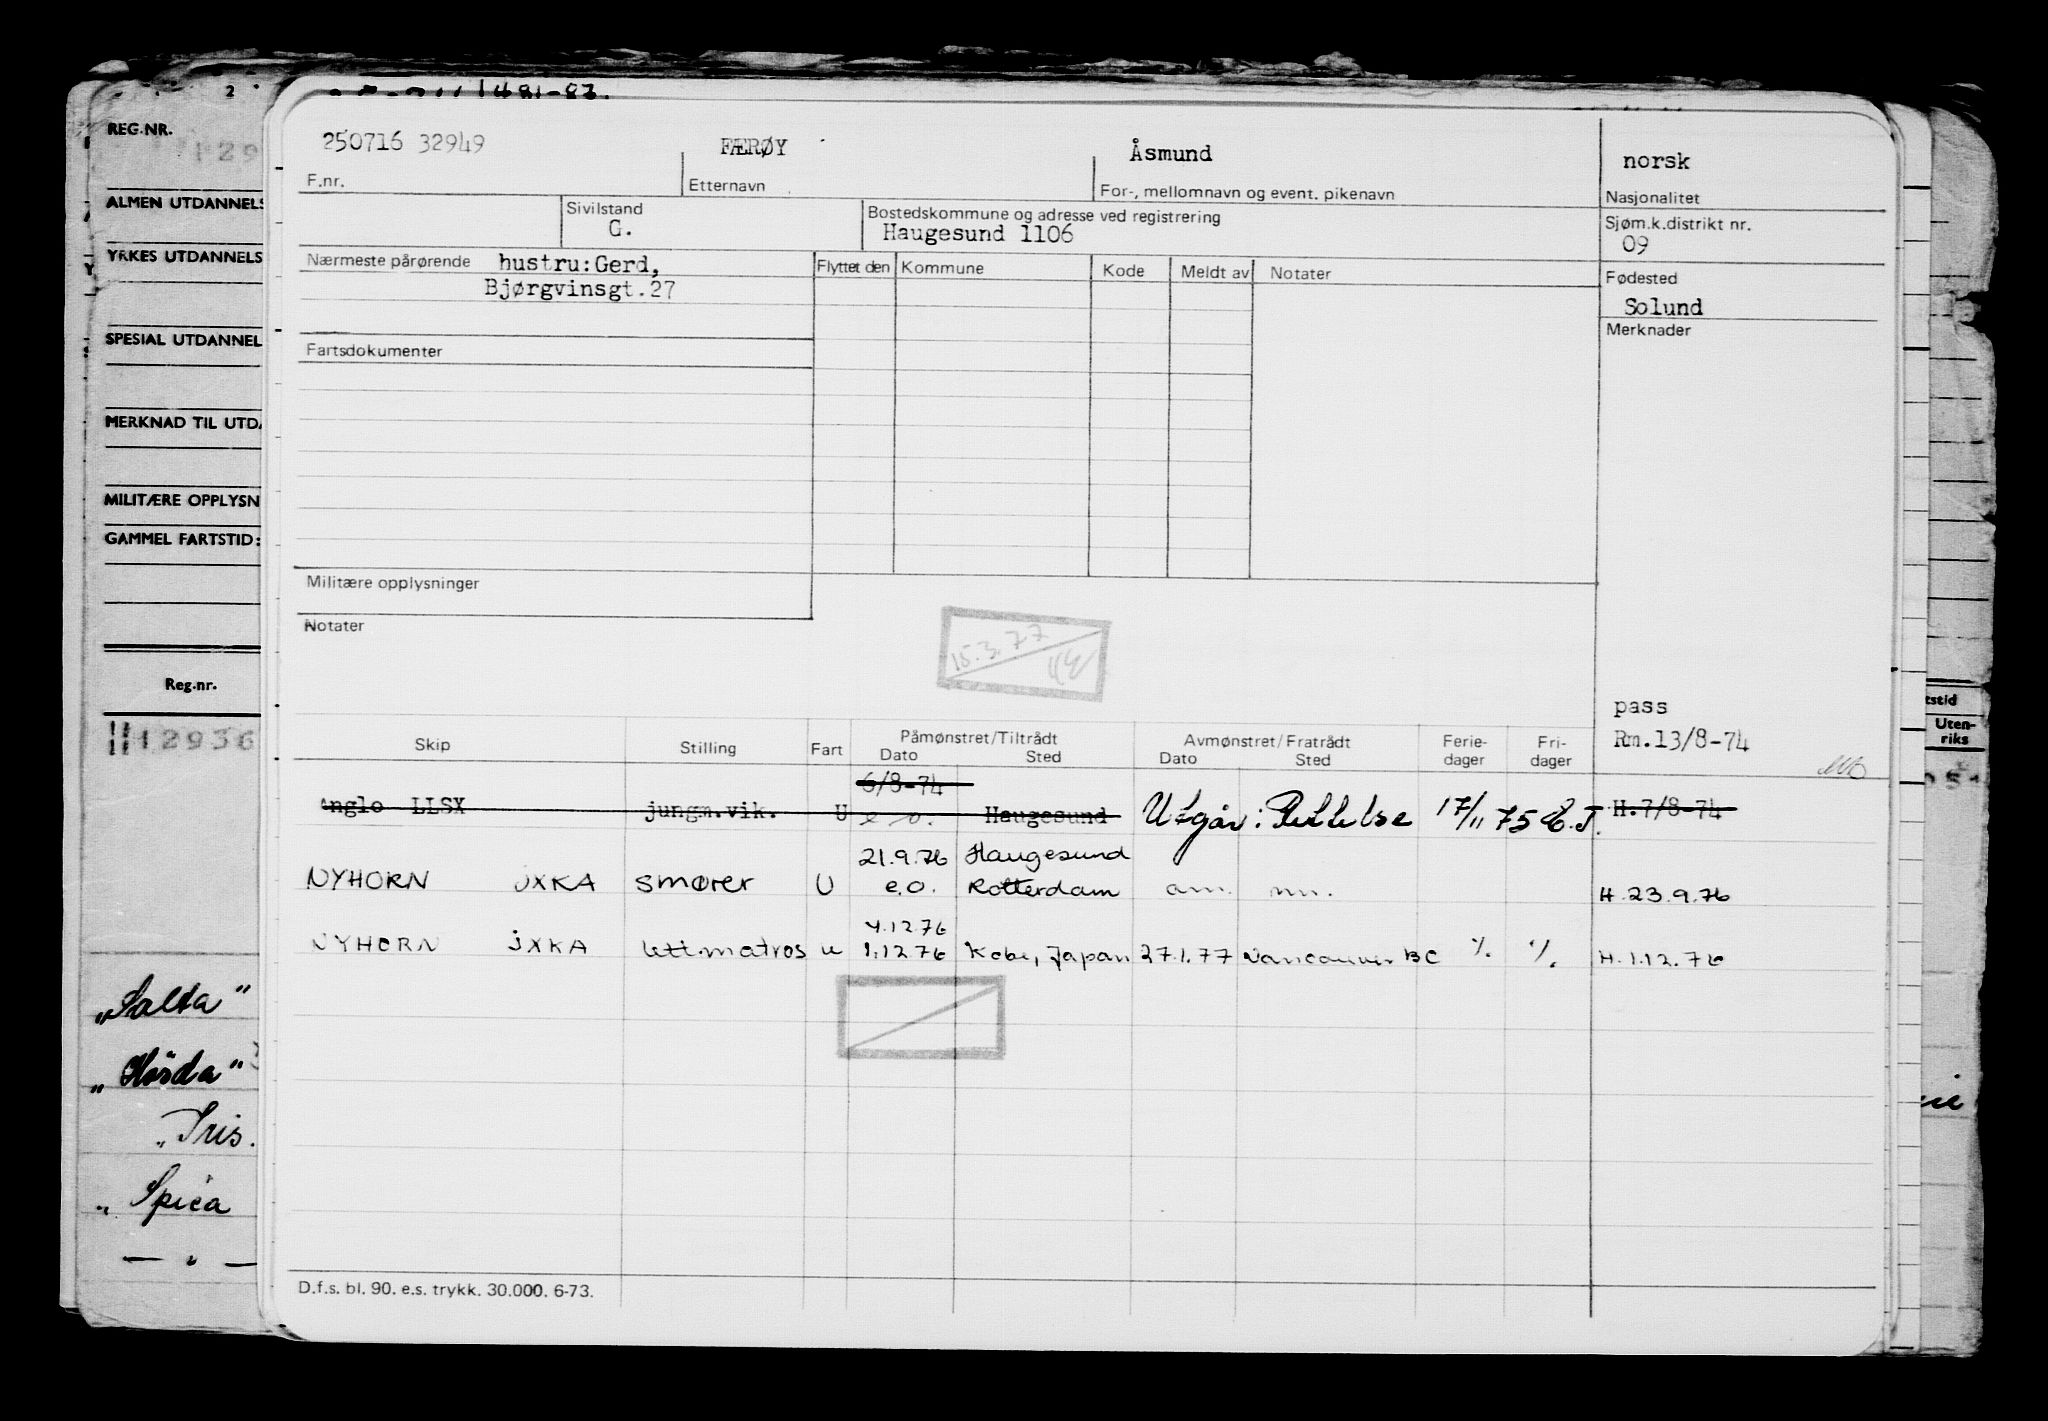 2
1481-83.
REG.NR.
129
ALMEN UTDANNELS
YRKES UTDANNELS
SPESIAL UTDANNEL
MERKNAD TIL UTDA
MILITÆRE OPPLYSN
GAMMEL FARTSTID:
Reg.nr.
12936
„Salta"
„Hösda"
„Iris.
„Spica
— „ —
250716 32949
FÆRØY
Åsmund
norsk
F.nr.
Etternavn
For-, mellomnavn og event. pikenavn
Nasjonalitet
Sivilstand
G.
Bostedskommune og adresse ved registrering
Haugesund 1106
Sjøm.k.distrikt nr.
09
Nærmeste pårørende hustru:Gerd,
Bjørgvinsgt.27
Flyttet den Kommune Kode Meldt av Notater
Fødested
Solund
Merknader
Fartsdokumenter
Militære opplysninger
Notater
15.3.77
pass
Rm.13/8-74
Skip Stilling Fart Påmønstret/Tiltrådt Avmønstret/Fratrådt Ferie- Fri-
Dato Sted Dato Sted dager dager
6/8-74
Anglo LLSX jungm.vik. U e.o. Haugesund Utgår: Rettelse 17/11 75 E.J. H.7/8-74
21.9.76 Haugesund
NYHORN JXKA smører U e.o. Rotterdam am. mm. H.23.9.76
4.12.76
NYHORN JXKA lett.matros u 1.12.76 Kobe, Japan 27.1.77 Vancouver BC % % H.1.12.76
D.f.s. bl. 90. e.s. trykk. 30.000. 6-73.
tstid
Uten-
riks